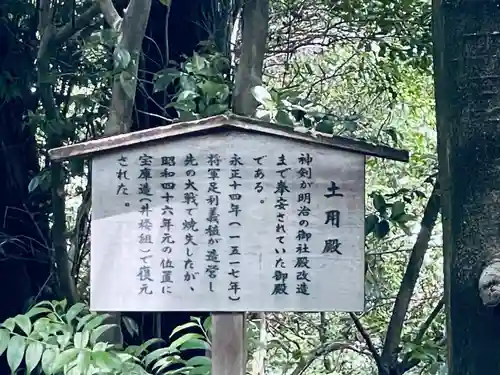 土用殿
神剣が明治の御社殿改造
まで奉安されていた御殿
である。
永正十四年（一五一七年）
将軍足利義稙が造営し
先の大戦で焼失したが、
昭和四十六年元の位置に
宝庫造（井桁組）で復元
された。